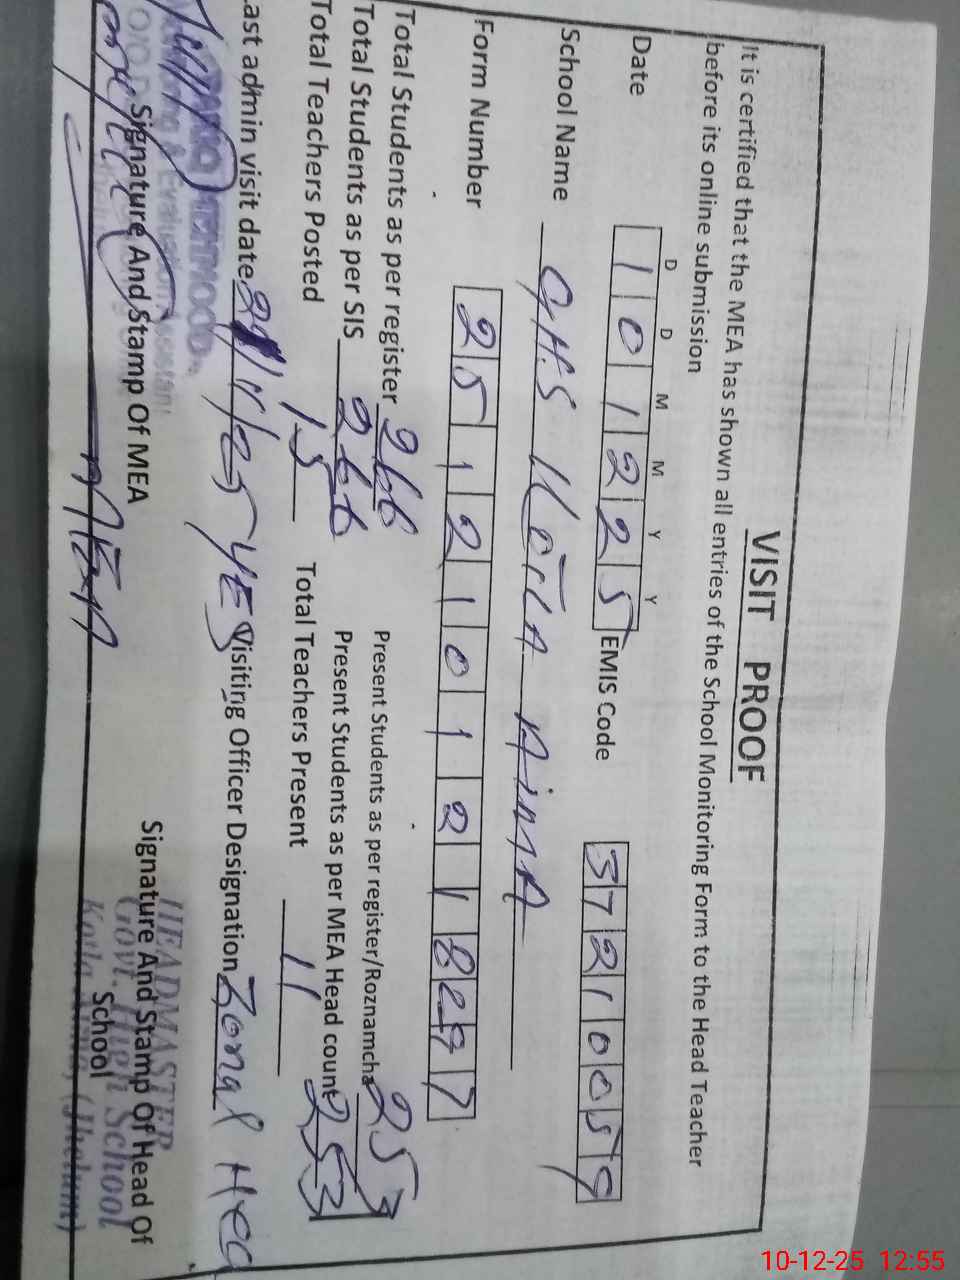 VISIT PROOF
It is certified that the MEA has shown all entries of the School Monitoring Form to the Head Teacher
before its online submission
D D M M Y Y
Date 101225 EMIS Code 37210059
School Name GHS Kotla Aima
Form Number 2512101218297
Total Students as per register 266 Present Students as per register/Roznamcha 253
Total Students as per SIS 266 Present Students as per MEA Head count 253
Total Teachers Posted 15 Total Teachers Present 11
Last admin visit date 21/11/25 YES Visiting Officer Designation Zonal Head
Signature And Stamp Of MEA
Signature And Stamp Of Head Of
School
Monitoring & Evaluation Assistant
HEADMASTER
Govt. High School
Kotla Aima, (Jhelum)
10-12-25 12:55